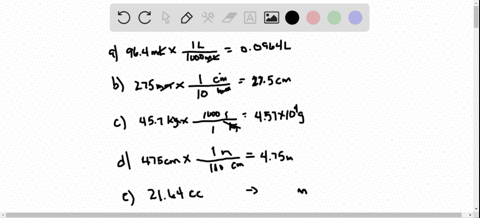 a) 96.4 mL × 1L / 1000 mL = 0.0964L
b) 275 mm × 1 cm / 10 mm = 27.5 cm
c) 45.7 kg × 1000 g / 1 kg = 4.57×10⁴g
d) 475cm × 1 m / 100 cm = 4.75m
e) 21.64 cc → m